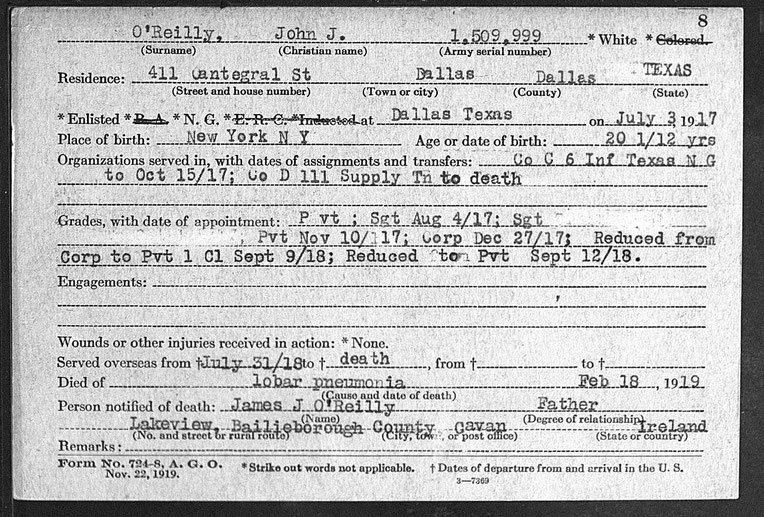 8
O'Reilly, John J. 1,509,999 * White * Colored.
(Surname) (Christian name) (Army serial number)
Residence: 411 Cantegral St Dallas Dallas TEXAS
(Street and house number) (Town or city) (County) (State)
* Enlisted * R. A. * N. G. * E. R. C. * Inducted at Dallas Texas on July 3 1917
Place of birth: New York N Y Age or date of birth: 20 1/12 yrs
Organizations served in, with dates of assignments and transfers: Co C 6 Inf Texas N G
to Oct 15/17; Co D 111 Supply Tn to death
Grades, with date of appointment: P vt ; Sgt Aug 4/17; Sgt
, Pvt Nov 10/ 17; Corp Dec 27/17; Reduced from
Corp to Pvt 1 Cl Sept 9/18; Reduced to Pvt Sept 12/18.
Engagements:
Wounds or other injuries received in action: * None.
Served overseas from † July 31/18 to † death , from † to †
Died of lobar pneumonia Feb 18 , 1919
(Cause and date of death)
Person notified of death: James J O'Reilly Father
(Name) (Degree of relationship)
Lakeview, Bailieborough County Cavan Ireland
(No. and street or rural route) (City, town, or post office) (State or country)
Remarks:
Form No. 724-8, A. G. O. * Strike out words not applicable. † Dates of departure from and arrival in the U. S.
Nov. 22, 1919. 3—7369